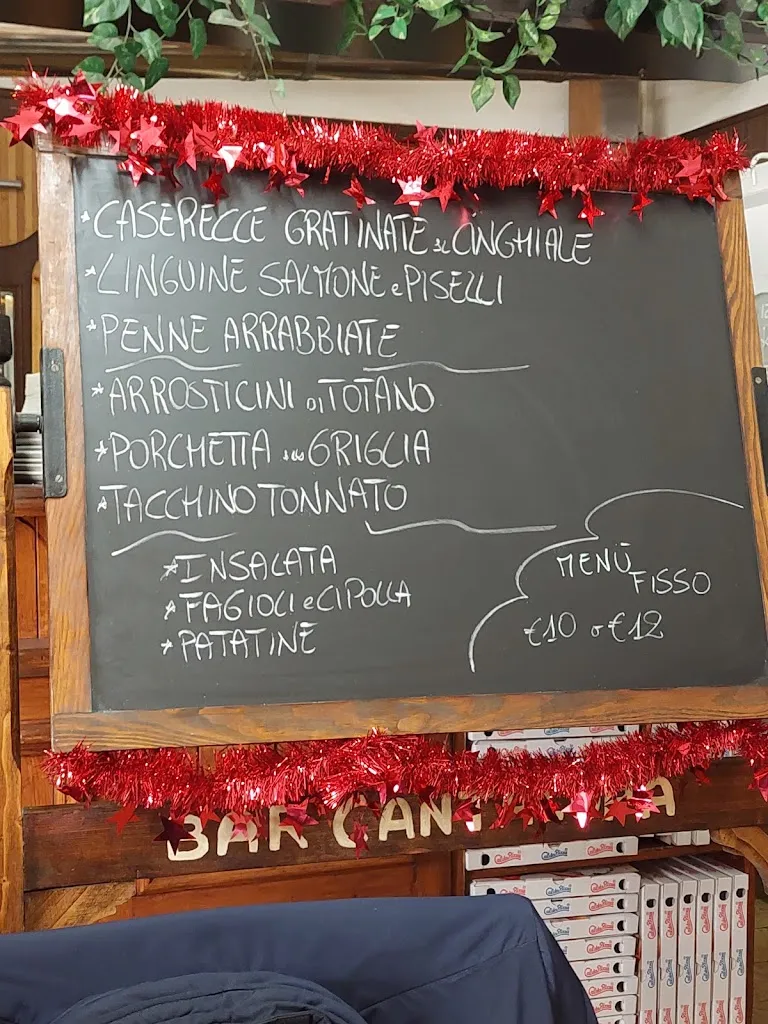 * CASERECCE GRATINATE al CINGHIALE
* LINGUINE SALMONE e PISELLI
* PENNE ARRABBIATE
* ARROSTICINI DI TOTANO
* PORCHETTA alla GRIGLIA
* TACCHINO TONNATO
* INSALATA
* FAGIOLI e CIPOLLA
* PATATINE
MENÙ
FISSO
€10 o €12
BAR